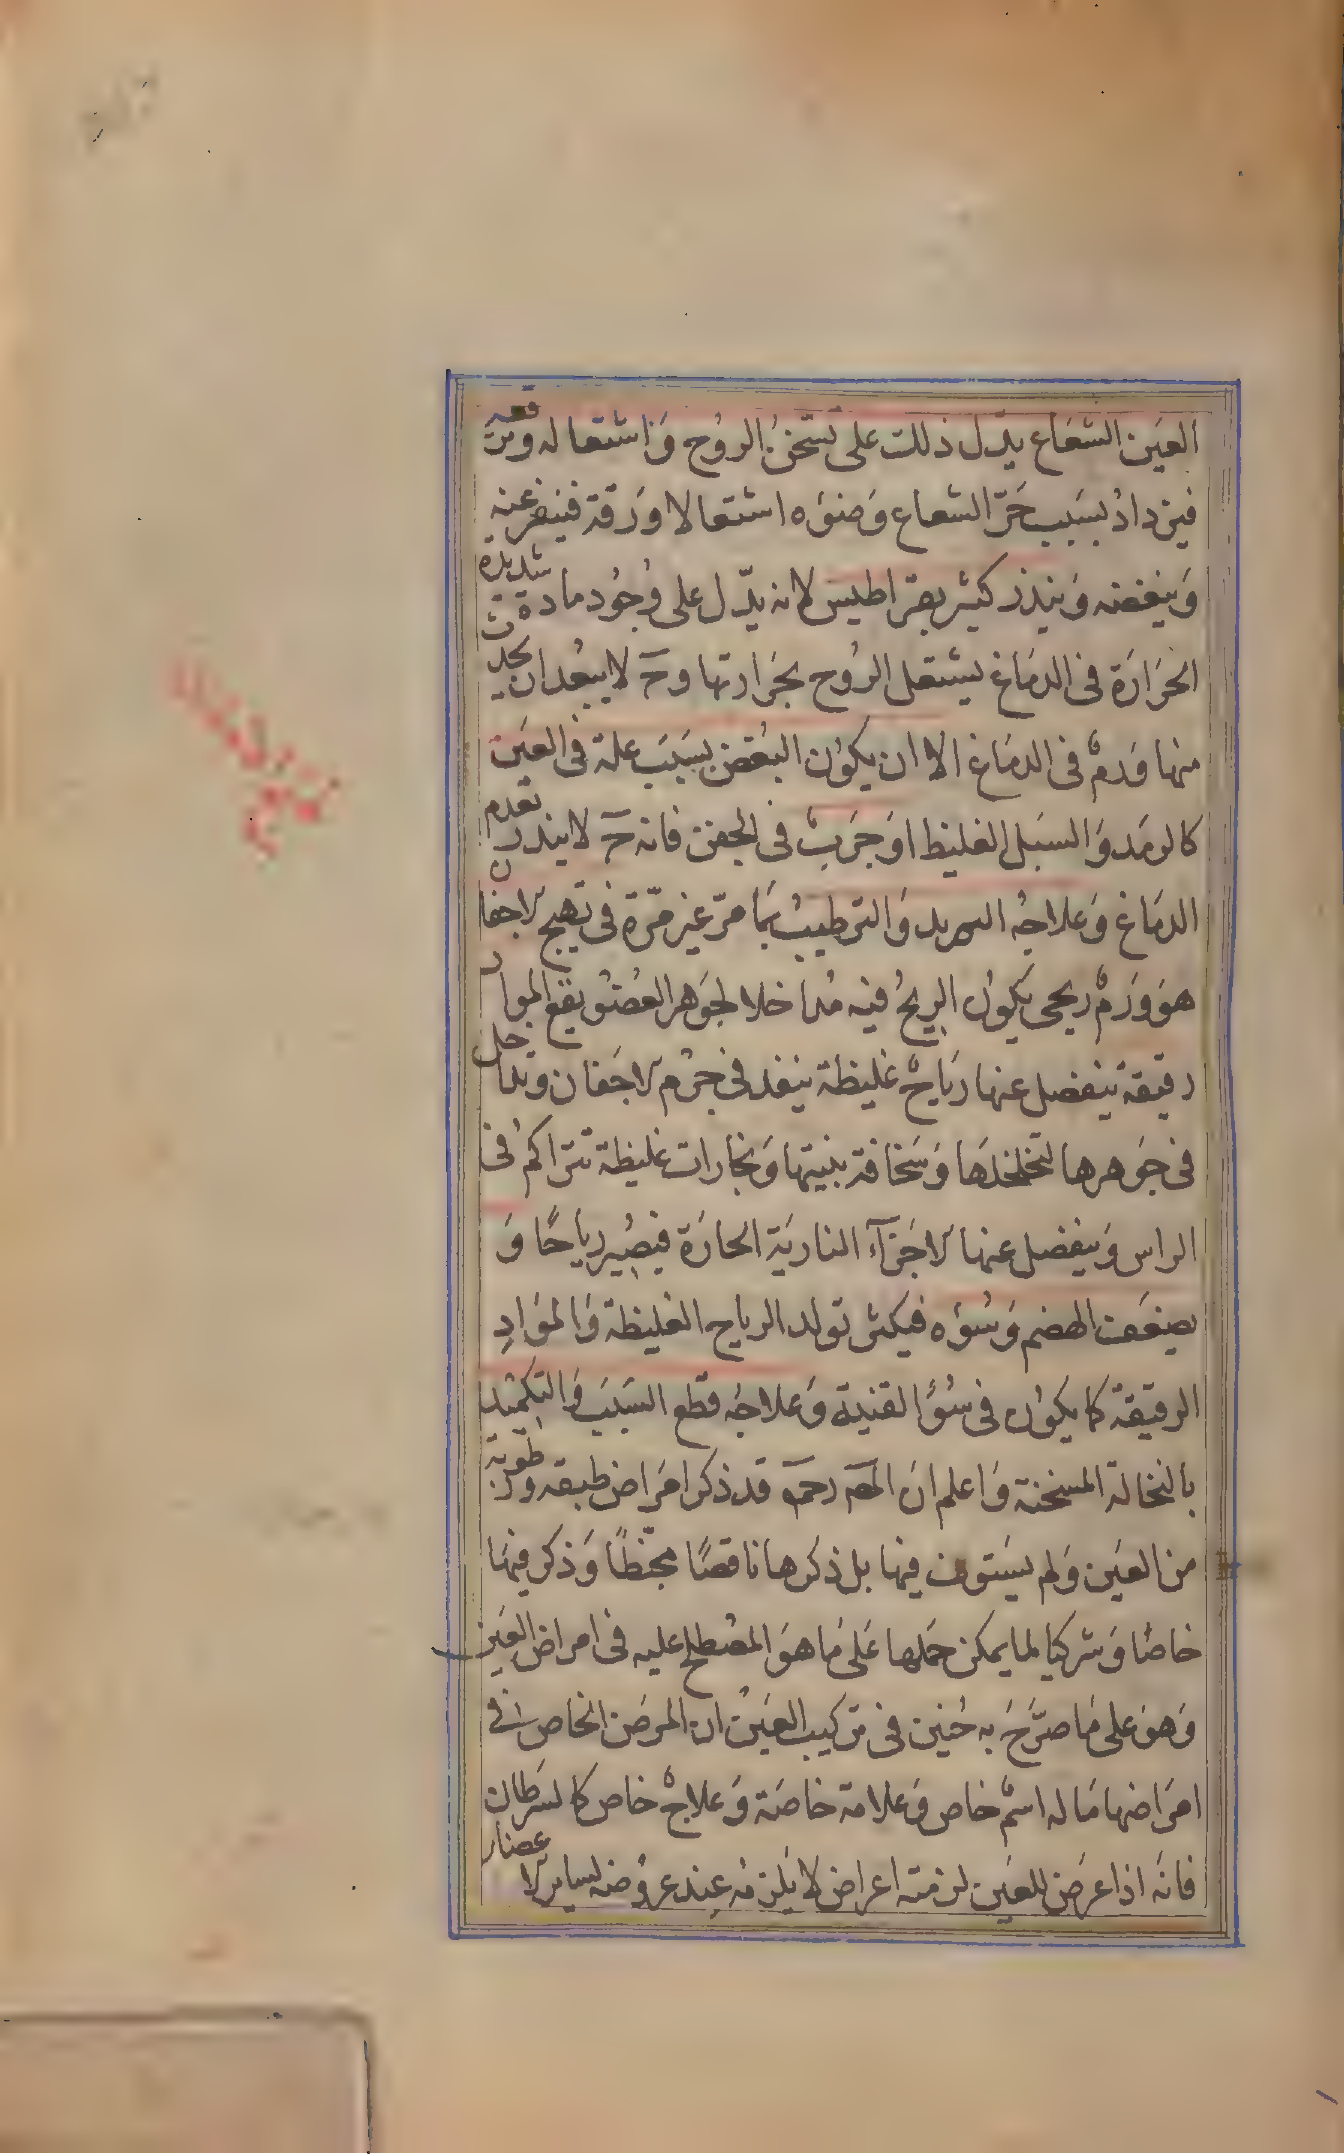 العين الشعاع يدّل ذلك على تسخّن الروح وَاشتعاله ورقته
فيزداد بسَبب حَرّ الشعاع وَضؤَه اشتعالا وَرقة فينفر عنه
وَيبغضه وَينذر كثير بقرّاطيس لانه يدّل على وُجُود مادة شديدة
الحَرارَة فى الدمَاغ يشتعل الروُح بحَرارتها وحَ لا يبعُد ان يحدث
منها وَرمٌ فى الدمَاغ الا ان يكوُن البُغض بسَبَب علة فى العيَن
كالرمَد وَالسبَل الغليظ اوَجَربٌ فى الجفن فانه حَ لا ينذر بورم
الدمَاغ وَعلاجُه التبريد وَالترطيبُ بمَا مرّ غير مرّة فى تهيج الاجفان
هوَ وَرَمٌ ريحى يكوُن الريحُ فيه مُداخلا لجوَهر العُضوُ يقع لمواد
رقيقة ينفصل عنها ريَاحٌ غليظة ينفذ فى جرْم الاجفان ويداخل
فى جوَهرها لتخلخلهَا وَسَخافة بنيتها وَبخارات غليظة تتراكمُ فى
الراس وَينفصل عنها الاجَزآء الناريَة الحارَة فيصُير رياحًا وَ
بضعَف الهضم وَسُؤَه فيكثر تولد الرياح الغليظة وَالموَادِ
الرقيقةٌ كما يكوُن فى سُؤُ القنية وَعلاجَه قطع السَبَب وَالتكميُد
بالنخالة المسخنة وَاعلم انَ المصَ رحمَه قد ذكر امَراض طبقه ورطوبة
من العَين وَلم يسَتوف فيها بل ذكرها ناقصًا مخبّطًا وَذكر فيهَا
خاصًا وَشركيا لما يمكن حَملها عَلى مَا هوَ المصُطلح عليه فى امراض العَين
وَهوَ على مَا صرَّحَ به حُنين فى تركيب العَيَن ان المرضَ الخاص فى
امَراضها مَا له اسمٌ خاص وَعلامة خاصَة وَعلاجٌ خاص كالسَرطان
فانَه اذا عرَضَ للعيَن لزمته اعراض لا يَلزمُه عند عروُضه لساير الاعضاء